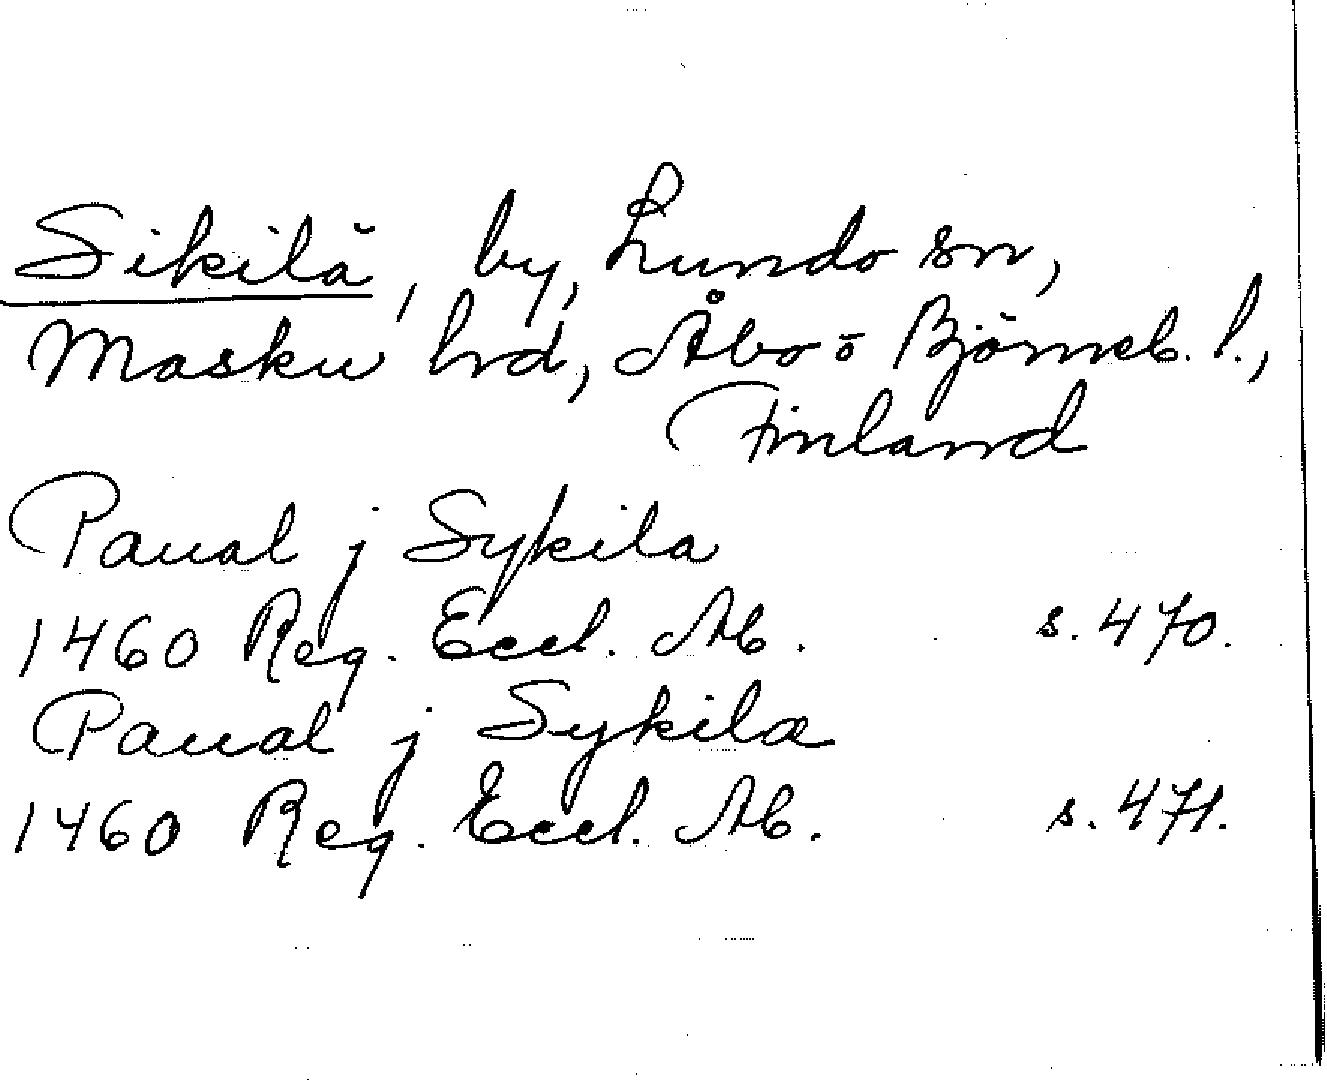 Sikilä, by, Lundo sn,
Masku hrd, Åbo o Björneb. l.,
Finland
Paual j Sykila
1460 Reg. Eccl. Ab. s. 470.
Paual j Sykila
1460 Reg. Eccl. Ab. s. 471.